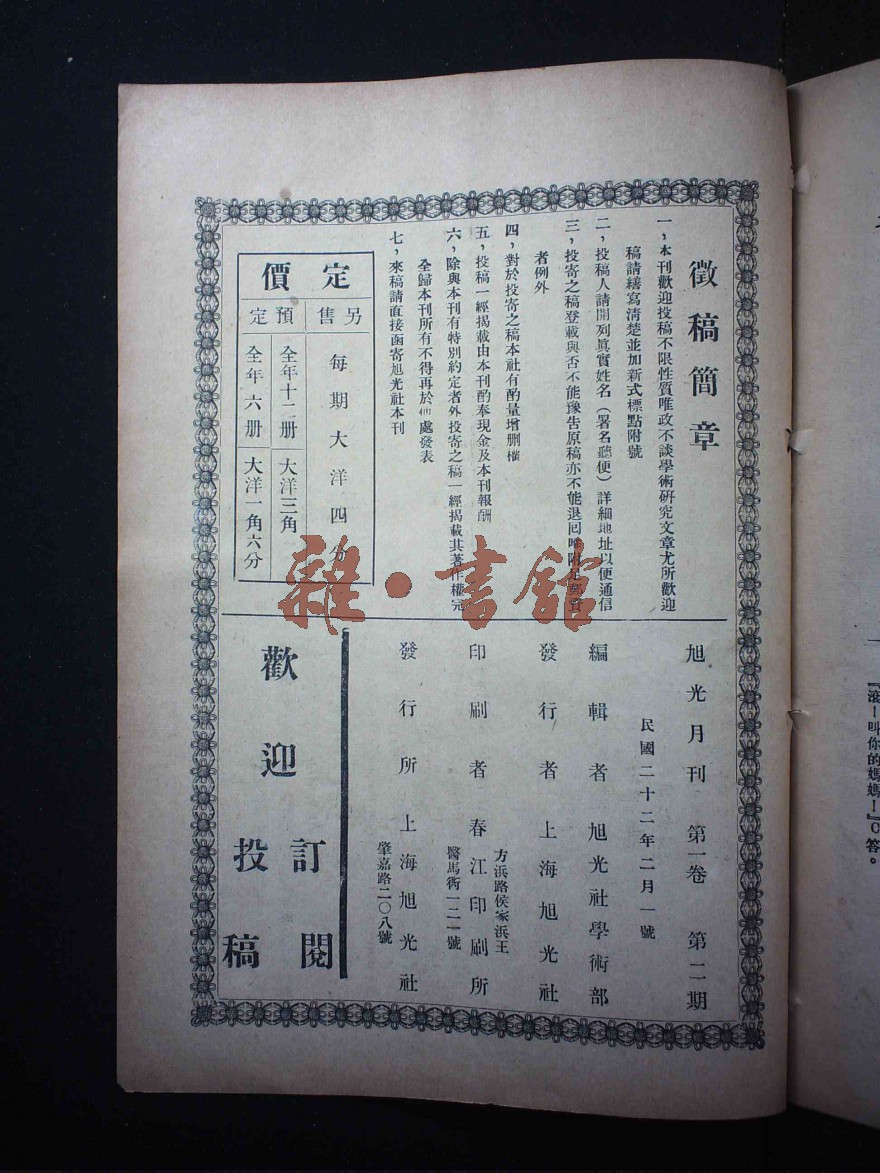 徵稿簡章
一，本刊歡迎投稿不限性質唯政不談學術研究文章尤所歡迎
稿請繕寫清楚並加新式標點附號
二，投稿人請開列眞實姓名（署名聽便）詳細地址以便通信
三，投寄之稿登載與否不能豫告原稿亦不能退囘唯附足郵資
者例外
四，對於投寄之稿本社有酌量增删權
五，投稿一經揭載由本刊酌奉現金及本刊報酬
六，除與本刊有特別約定者外投寄之稿一經揭載其著作權完
全歸本刊所有不得再於他處發表
七，來稿請直接函寄旭光社本刊
定價
另售
每期大洋四分
預定
全年十二册 大洋三角
全年六册 大洋一角六分
旭光月刊 第一卷 第二期
民國二十二年二月一號
編輯者 旭光社學術部
發行者 上海旭光社
方浜路侯家浜王
印刷者 春江印刷所
醫馬街一二一號
發行所 上海旭光社
肇嘉路二〇八號
歡迎
訂閱
投稿
雜·書館
『滾！叫你的媽媽！』C答。